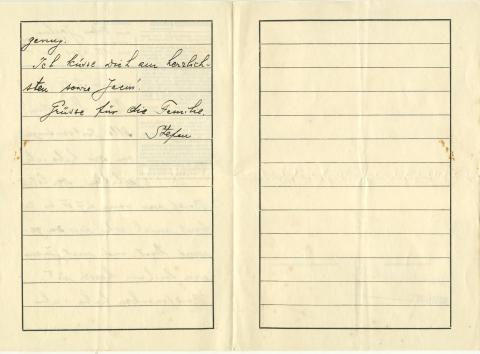 genug.
Ich küsse Dich am herzlich-
sten sowie
Grüsse für die Familie.
Stefan